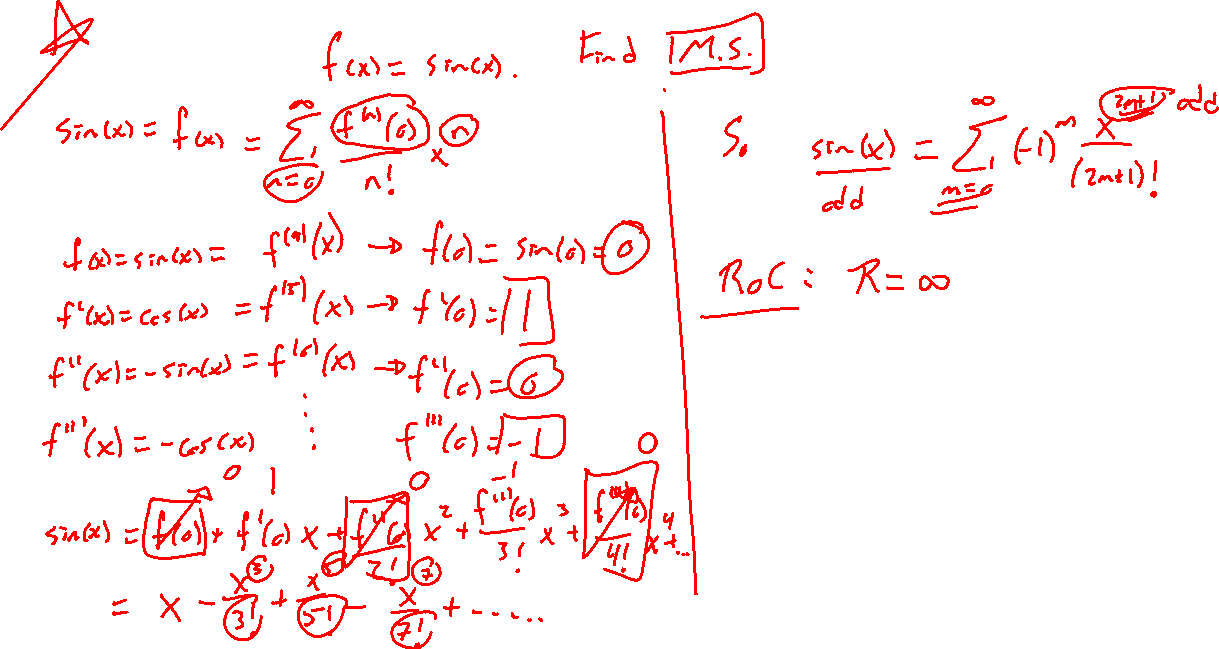 f(x) = sin(x). Find M.S.
sin(x) = f(x) = ∑_{n=0}^{∞} f^{(n)}(0)/n! x^n
f(x) = sin(x) = f^{(4)}(x) → f(0) = sin(0) = 0
f'(x) = cos(x) = f^{(5)}(x) → f'(0) = 1
f''(x) = -sin(x) = f^{(6)}(x) → f''(0) = 0
f'''(x) = -cos(x) ⋮ f'''(0) = -1
0 1 0 -1 0
sin(x) = f(0) + f'(0) x + f''(0)/2! x^2 + f'''(0)/3! x^3 + f''''(0)/4! x^4 + ...
= x - x^3/3! + x^5/5! - x^7/7! + .....
So sin(x) = ∑_{m=0}^{∞} (-1)^m x^{2m+1}/(2m+1)! odd
odd
RoC : R = ∞